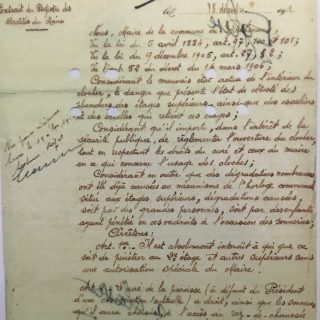 Extrait du Registre des
Arrêtés du Maire
Nous, Maire de la commune de
Vu la loi du 5 avril 1884, art. 97, 100, 101;
Vu la loi du 9 décembre 1905, art.
Vu l'art. 52 du décret du 16 mars 1906;
Considérant le mauvais état actuel de l'intérieur du
clocher, le danger que présente l'état de vétusté des
planchers des étages supérieurs, ainsi que des escaliers
et des échelles qui relient ces étages;
Considérant qu'il importe, dans l'intérêt de la
sécurité publique, de réglementer l'ouverture du clocher,
tout en respectant les droits du curé et ceux du maire
en ce qui concerne l'usage des cloches;
Considérant en outre que des dégradations nombreuses
ont été déjà causées au mécanisme de l'horloge communale
située aux étages supérieurs, dégradations causées,
soit par des grandes personnes, soit par des enfants
ayant pénétré en ces endroits à l'occasion des sonneries;
Arrêtons:
Art. 1er - Il est absolument interdit à qui que ce
soit de pénétrer au 2e étage et autres supérieurs sans
une autorisation spéciale du Maire.
Art. 2 - Le curé de la paroisse (à défaut du Président
d'une association cultuelle) a droit, ainsi que les sonneurs
qu'il aura choisis à l'accès au rez-de-chaussée